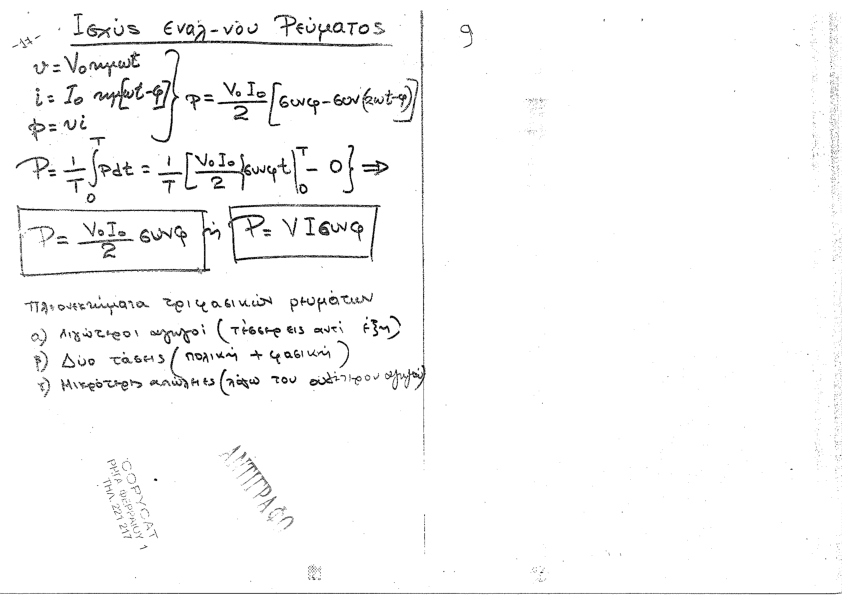 -17- Ισχύς εναλ-νου Ρεύματος
v = V₀ ημωt
i = I₀ ημ[ωt-φ] } p = V₀ I₀ / 2 [συνφ - συν(2ωt-φ)]
p = vi
P = 1/T ∫₀ᵀ pdt = 1/T [V₀ I₀ / 2 {συνφt |₀ᵀ - 0} ⇒
P = V₀ I₀ / 2 συνφ ή P = V I συνφ
Πλεονεκτήματα τριφασικών ρευμάτων
α) Λιγώτεροι αγωγοί (τέσσερεις αντί έξη)
β) Δύο τάσεις (πολική + φασική)
γ) Μικρότερες απώλειες (λόγω του ουδέτερου αγωγού)
COPYCAT
ΡΗΓΑ ΦΕΡΡΑΙΟΥ 1
ΤΗΛ. 221 217
ΑΝΤΙΓΡΑΦΟ
9